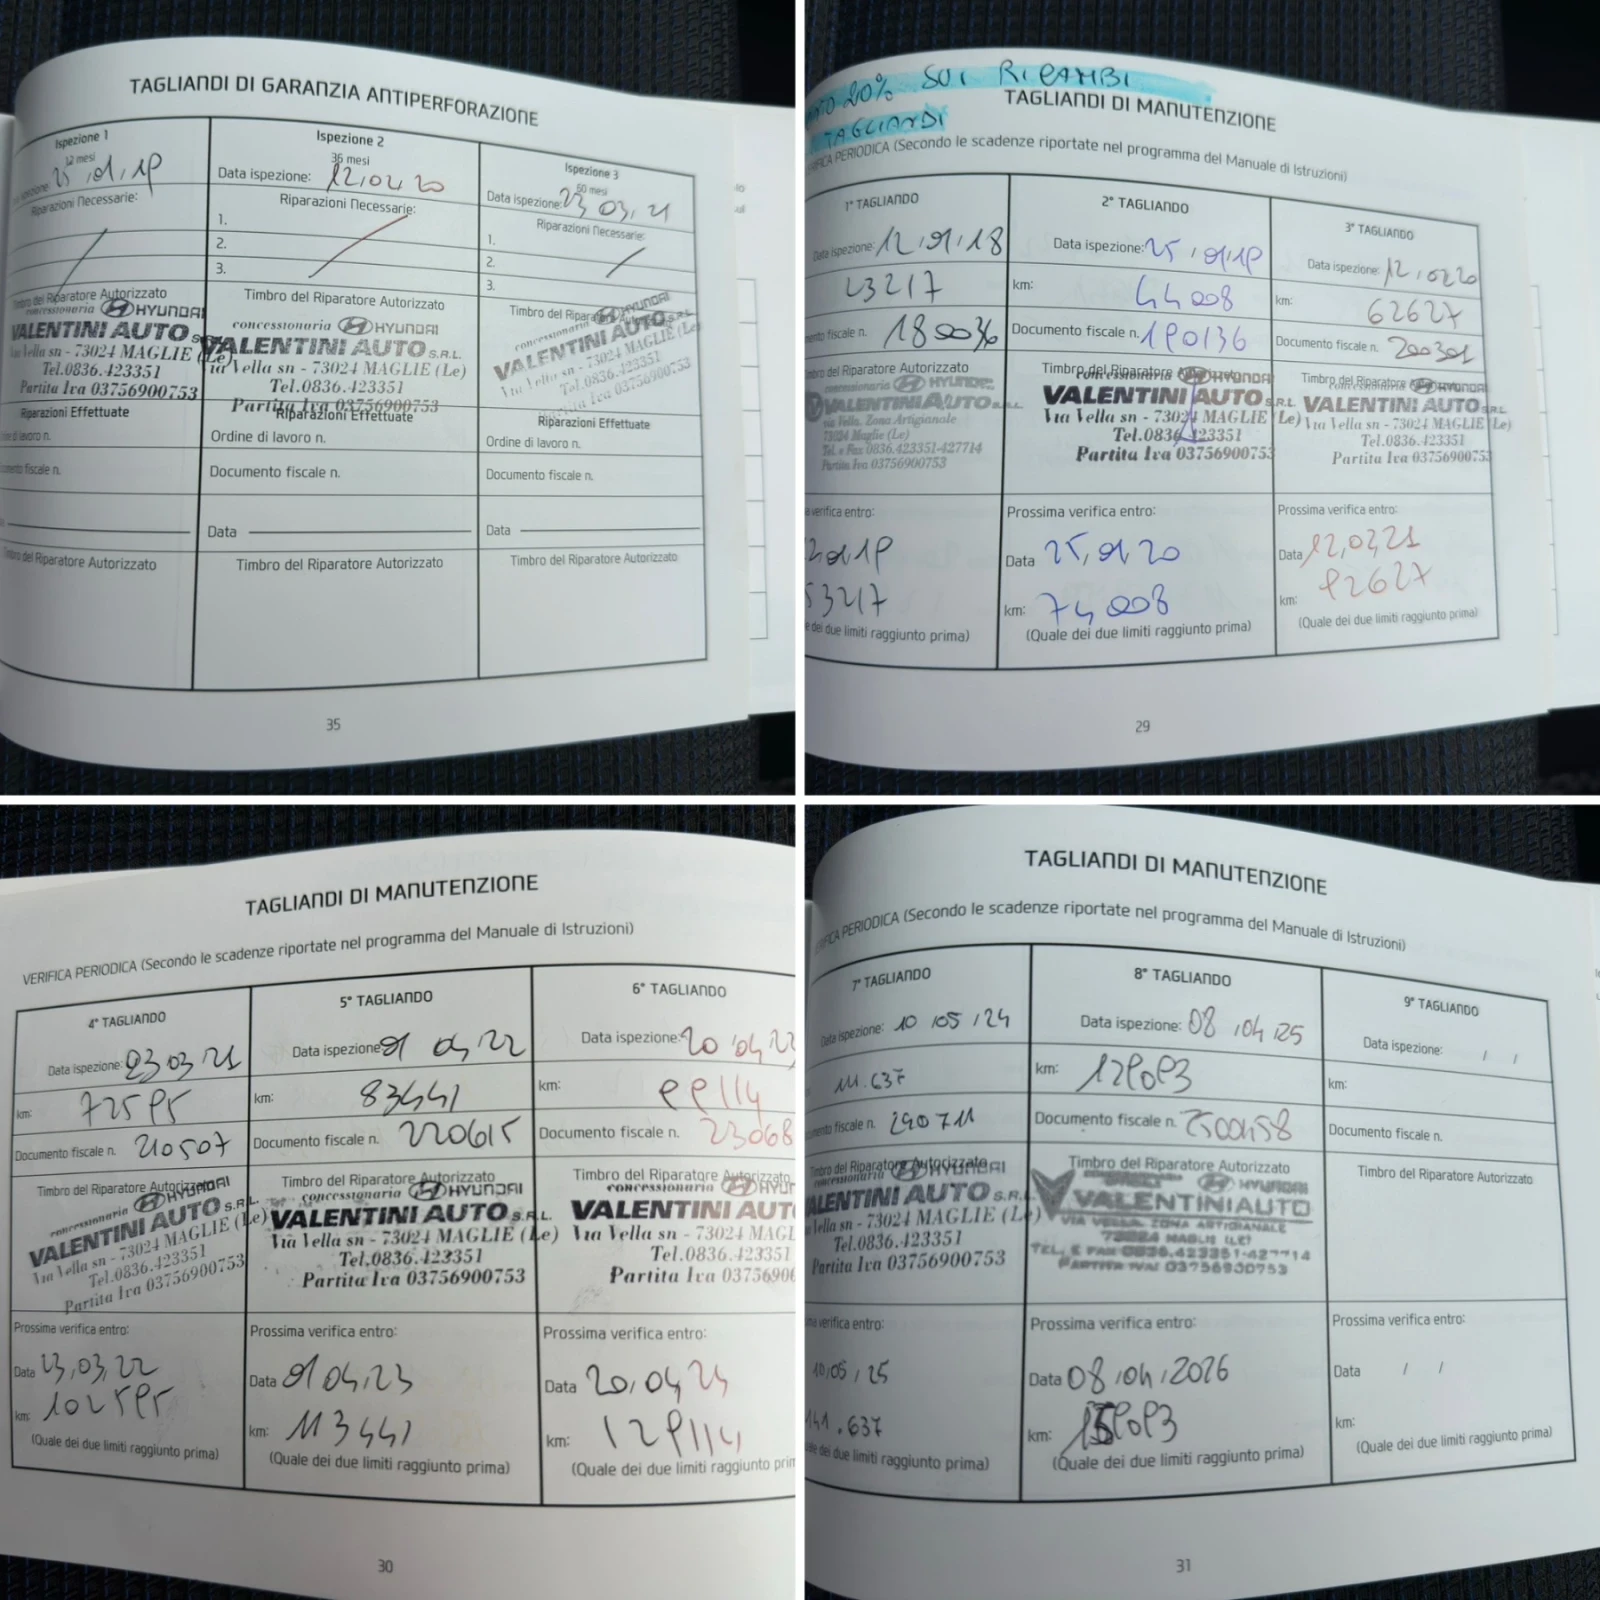 TAGLIANDI DI GARANZIA ANTIPERFORAZIONE
Ispezione 1
12 mesi
25,01,19
Riparazioni Necessarie:
Timbro del Riparatore Autorizzato
concessionaria HYUNDAI
VALENTINI AUTO
Via Vella sn - 73024 MAGLIE (Le)
Tel.0836.423351
Partita Iva 03756900753
Riparazioni Effettuate
di lavoro n.
fiscale n.
Timbro del Riparatore Autorizzato
Ispezione 2
36 mesi
Data ispezione: 12,02,20
Riparazioni Necessarie:
1.
2.
3.
Timbro del Riparatore Autorizzato
concessionaria HYUNDAI
VALENTINI AUTO S.R.L.
Via Vella sn - 73024 MAGLIE (Le)
Tel.0836.423351
Partita Iva 03756900753
Riparazioni Effettuate
Ordine di lavoro n.
Documento fiscale n.
Data
Timbro del Riparatore Autorizzato
Ispezione 3
60 mesi
Data ispezione: 23 03,21
Riparazioni Necessarie:
1.
2.
3.
Timbro del Riparatore
concessionaria HYUNDAI
VALENTINI AUTO S.R.L.
Via Vella sn - 73024 MAGLIE (Le)
Tel.0836.423351
Partita Iva 03756900753
Riparazioni Effettuate
Ordine di lavoro n.
Documento fiscale n.
Data
Timbro del Riparatore Autorizzato
35
20% SUI RICAMBI
TAGLIANDI
TAGLIANDI DI MANUTENZIONE
PERIODICA (Secondo le scadenze riportate nel programma del Manuale di Istruzioni)
1° TAGLIANDO
Data ispezione: 12,01,18
23217
fiscale n. 180036
Riparatore Autorizzato
concessionaria HYUNDAI
VALENTINI AUTO S.R.L.
via Vella, Zona Artigianale
73024 Maglie (Le)
Tel. e Fax 0836.423351-427714
Partita Iva 03756900753
verifica entro:
01,19
53217
dei due limiti raggiunto prima)
2° TAGLIANDO
Data ispezione: 25,01,19
km: 44008
Documento fiscale n. 190136
Timbro del Riparatore
concessionaria HYUNDAI
VALENTINI AUTO S.R.L.
Via Vella sn - 73024 MAGLIE (Le)
Tel.0836.423351
Partita Iva 03756900753
Prossima verifica entro:
Data 25,01,20
km: 74008
(Quale dei due limiti raggiunto prima)
3° TAGLIANDO
Data ispezione: 12,02,20
km: 62627
Documento fiscale n. 200301
Timbro del Riparatore
concessionaria HYUNDAI
VALENTINI AUTO S.R.L.
Via Vella sn - 73024 MAGLIE (Le)
Tel.0836.423351
Partita Iva 03756900753
Prossima verifica entro:
Data 12,02,21
km: 92627
(Quale dei due limiti raggiunto prima)
29
TAGLIANDI DI MANUTENZIONE
VERIFICA PERIODICA (Secondo le scadenze riportate nel programma del Manuale di Istruzioni)
4° TAGLIANDO
Data ispezione: 23 03,21
km: 72595
Documento fiscale n. 210507
Timbro del Riparatore Autorizzato
concessionaria HYUNDAI
VALENTINI AUTO S.R.L.
Via Vella sn - 73024 MAGLIE (Le)
Tel.0836.423351
Partita Iva 03756900753
Prossima verifica entro:
Data 23,03,22
km: 102595
(Quale dei due limiti raggiunto prima)
5° TAGLIANDO
Data ispezione 01 04,22
km: 83441
Documento fiscale n. 220615
Timbro del Riparatore Autorizzato
concessionaria HYUNDAI
VALENTINI AUTO S.R.L.
Via Vella sn - 73024 MAGLIE (Le)
Tel.0836.423351
Partita Iva 03756900753
Prossima verifica entro:
Data 01 04,23
km: 113441
(Quale dei due limiti raggiunto prima)
6° TAGLIANDO
Data ispezione: 20,04,
km: 99114
Documento fiscale n. 23068
Timbro del Riparatore Autorizzato
concessionaria HYUN
VALENTINI AUT
Via Vella sn - 73024 MAGL
Tel.0836.423351
Partita Iva 0375690
Prossima verifica entro:
Data 20,04,24
km: 129114
(Quale dei due limiti raggiunto prim
30
TAGLIANDI DI MANUTENZIONE
VERIFICA PERIODICA (Secondo le scadenze riportate nel programma del Manuale di Istruzioni)
7° TAGLIANDO
Data ispezione: 10/05/24
111.637
fiscale n. 240711
Timbro del Riparatore Autorizzato
concessionaria HYUNDAI
VALENTINI AUTO S.R.L.
Vella sn - 73024 MAGLIE (Le)
Tel.0836.423351
Partita Iva 03756900753
verifica entro:
10/05/25
141.637
dei due limiti raggiunto prima)
8° TAGLIANDO
Data ispezione: 08,04,25
km: 129093
Documento fiscale n. 2500458
Timbro del Riparatore Autorizzato
HYUNDAI
VALENTINIAUTO
VIA VELLA ZONA ARTIGIANALE
73024 MAGLIE (LE)
TEL. E FAX 0836.423351-427714
PARTITA IVA: 03756900753
Prossima verifica entro:
Data 08,04,2026
km: 159093
(Quale dei due limiti raggiunto prima)
9° TAGLIANDO
Data ispezione: / /
km:
Documento fiscale n.
Timbro del Riparatore Autorizzato
Prossima verifica entro:
Data / /
km:
(Quale dei due limiti raggiunto prima)
31